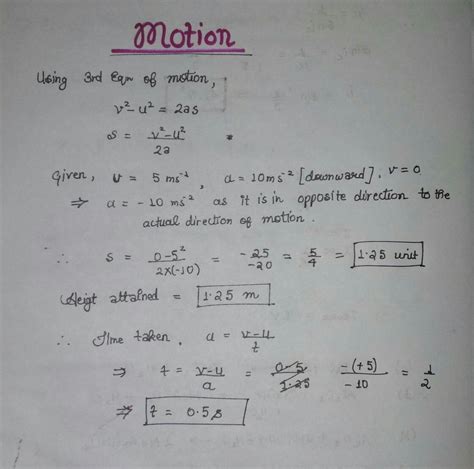 Motion
Using 3rd Eqn of motion,
v² - u² = 2as
s = (v² - u²)/2a
Given, u = 5 ms⁻¹, a = 10 ms⁻² [downward], v = 0
⇒ a = - 10 ms⁻² as it is in opposite direction to the
actual direction of motion.
∴ s = (0-5²)/(2×(-10)) = -25/-20 = 5/4 = 1.25 unit
Heigt attained = 1.25 m
∴ Time taken, a = (v-u)/t
⇒ t = (v-u)/a = (0-5)/1.25 -(+5)/-10 = 1/2
⇒ t = 0.5 s